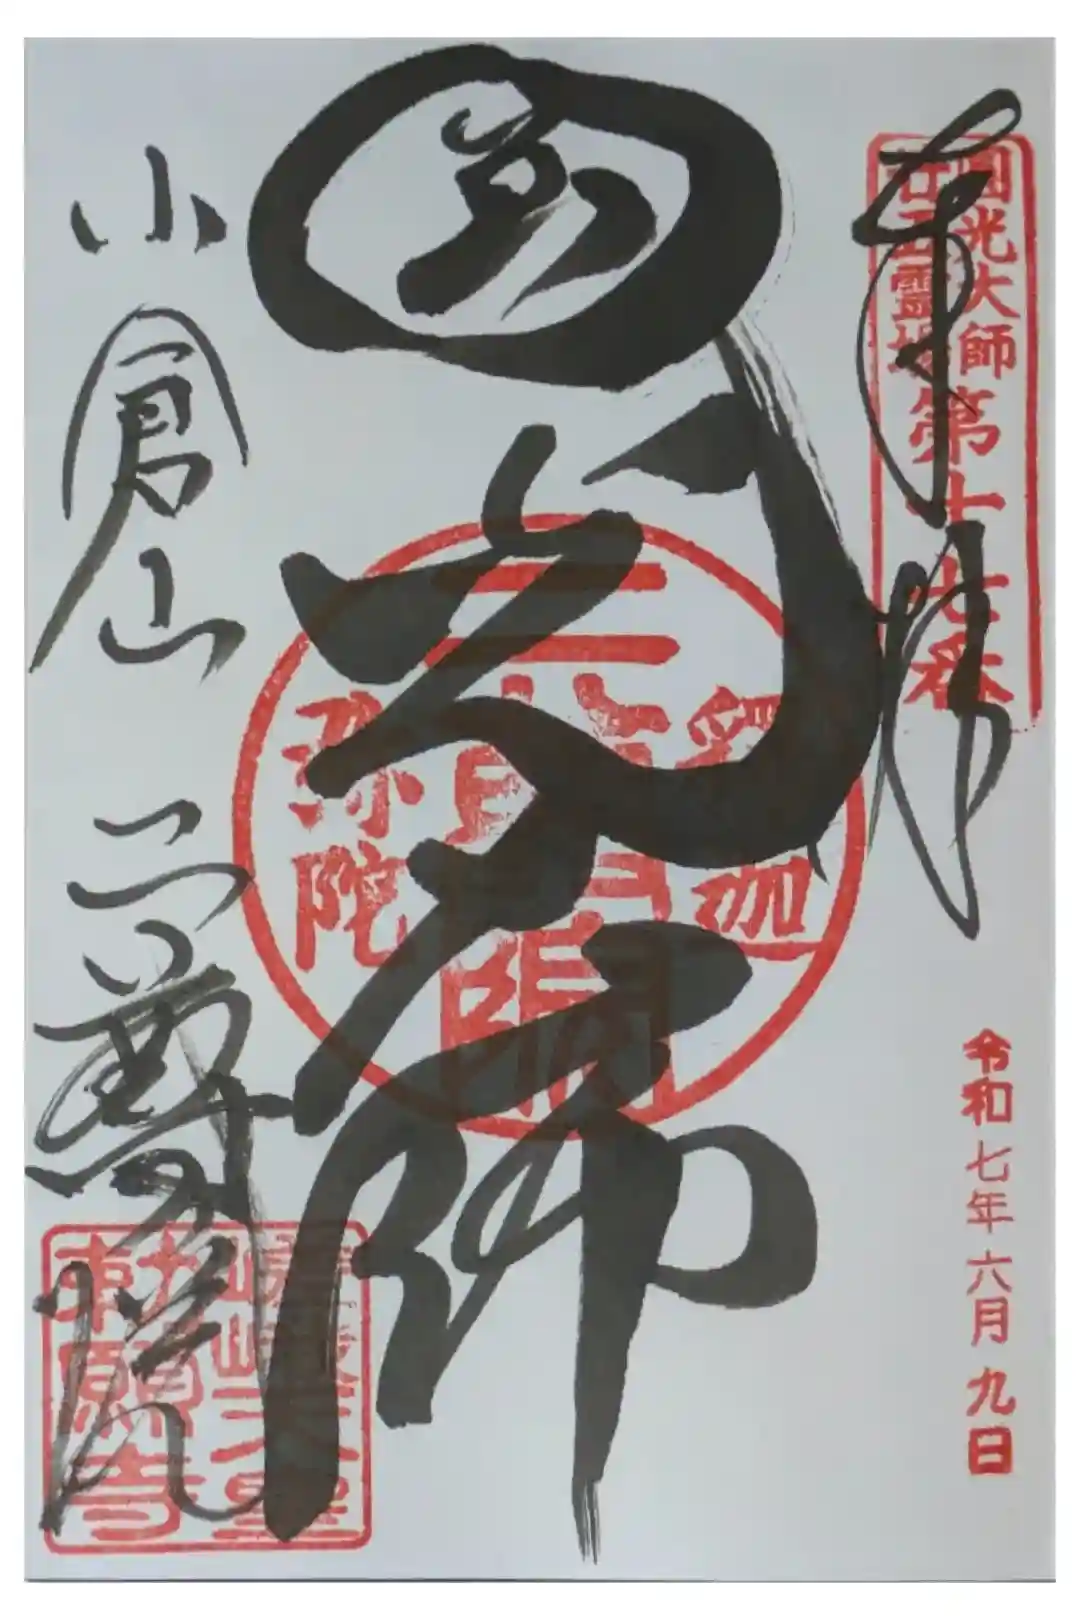 奉拝
圓光大師
廿五霊場
第十七番
圓光大師
釈迦
二尊
弥陀
小倉山
二尊院
令和七年六月九日